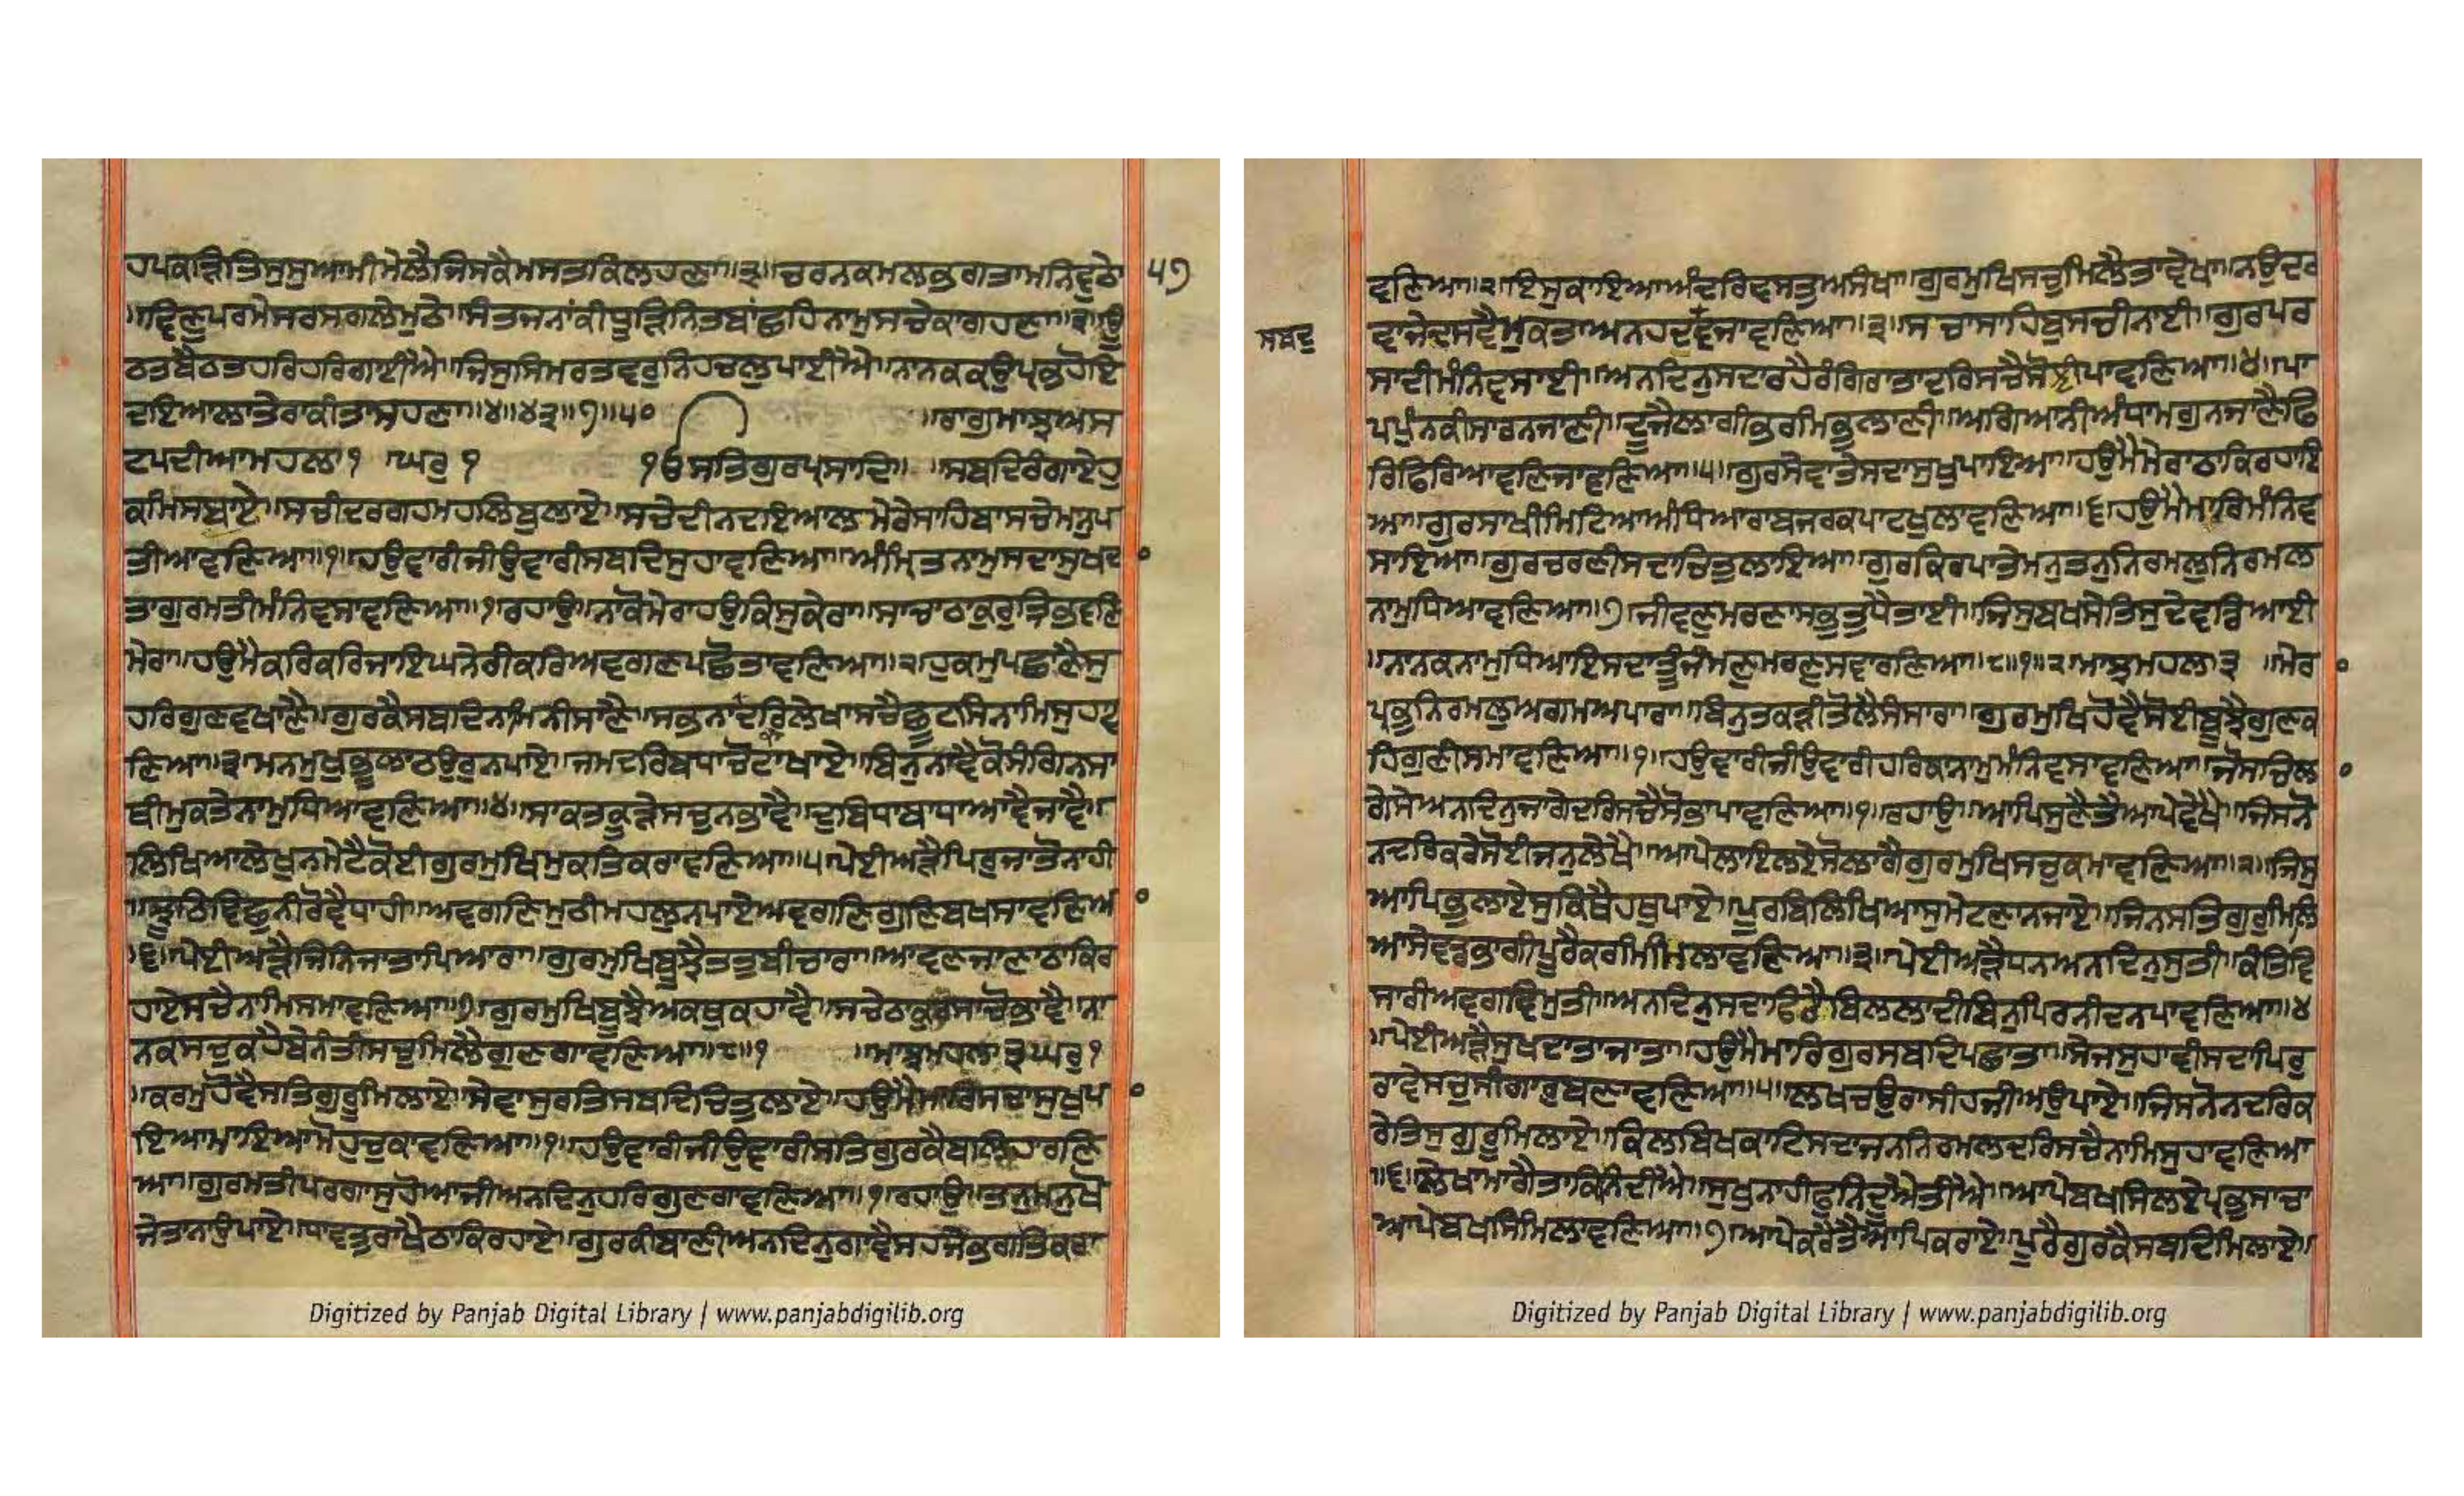 ਹਪਕੜਿਤਿਸੁਸੁਆਮੀਮੇਲੈਜਿਸਕੈਮਸਤਕਿਲਹਣਾ॥੩॥ਚਰਨਕਮਲਭਗਤਾਮਨਿਵੁਠੇ
੫੭
॥ਵਿਣੁਪਰਮੇਸਰਸਗਲੇਮੁਠੇ॥ਸੰਤਜਨਾਂਕੀਧੂੜਿਨਿਤਬਾਂਛਹਿਨਾਮੁਸਚੇਕਾਗਹਣਾ॥੩॥ਊ
ਠਤਬੈਠਤਹਰਿਹਰਿਗਾਈਐ॥ਜਿਸੁਸਿਮਰਤਵਰੁਨਿਹਚਲੁਪਾਈਐ॥ਨਾਨਕਕਉਪ੍ਰਭਹੋਇ
ਦਇਆਲਾਤੇਰਾਕੀਤਾਸਹਣਾ॥੪॥੪੩॥੭॥੫੦ ॥ਰਾਗੁਮਾਝਅਸ
ਟਪਦੀਆਮਹਲਾ੧ ਘਰੁ ੧ ੴਸਤਿਗੁਰਪ੍ਰਸਾਦਿ॥ ਸਬਦਿਰੰਗਾਏਹੁ
ਕਮਿਸਬਾਏ॥ਸਚੀਦਰਗਹਮਹਲਿਬੁਲਾਏ॥ਸਚੇਦੀਨਦਇਆਲਮੇਰੇਸਾਹਿਬਾਸਚੇਮਨੁਪ
ਤੀਆਵਣਿਆ॥੧॥ਹਉਵਾਰੀਜੀਉਵਾਰੀਸਬਦਿਸੁਹਾਵਣਿਆ॥ਅੰਮ੍ਰਿਤਨਾਮੁਸਦਾਸੁਖਦ
ਤਾਗੁਰਮਤੀਮੰਨਿਵਸਾਵਣਿਆ॥੧॥ਰਹਾਉ॥ਨਾਕੋਮੇਰਾਹਉਕਿਸੁਕੇਰਾ॥ਸਾਚਾਠਾਕੁਰੁਤ੍ਰਿਭਵਣਿ
ਮੇਰਾ॥ਹਉਮੈਕਰਿਕਰਿਜਾਇਘਨੇਰੀਕਰਿਅਵਗਣਪਛੋਤਾਵਣਿਆ॥੨॥ਹੁਕਮੁਪਛਾਣੈਸੁ
ਹਰਿਗੁਣਵਖਾਣੈ॥ਗੁਰਕੈਸਬਦਿਨਾਮਿਨੀਸਾਣੈ॥ਸਭਨਾਦਰਿਲੇਖਾਸਚੈਛੂਟਸਿਨਾਮਿਸੁਹਾਵ
ਣਿਆ॥੩॥ਮਨਮੁਖੁਭੂਲਾਠਉਰੁਨਪਾਏ॥ਜਮਦਰਿਬਧਾਚੋਟਾਖਾਏ॥ਬਿਨੁਨਾਵੈਕੋਸੰਗਿਨਸਾ
ਥੀਮੁਕਤੇਨਾਮੁਧਿਆਵਣਿਆ॥੪॥ਸਾਕਤਕੂੜੇਸਚੁਨਭਾਵੈ॥ਦੁਬਿਧਾਬਾਧਾਆਵੈਜਾਵੈ॥
ਲਿਖਿਆਲੇਖੁਨਮੇਟੈਕੋਈਗੁਰਮੁਖਿਮੁਕਤਿਕਰਾਵਣਿਆ॥੫॥ਪੇਈਅੜੈਪਿਰੁਜਾਤੋਨਾਹੀ
॥ਝੂਠਿਵਿਛੁਨੀਰੋਵੈਧਾਹੀ॥ਅਵਗਣਿਮੁਠੀਮਹਲੁਨਪਾਏਅਵਗਣਿਗੁਣਿਬਖਸਾਵਣਿਆ
॥੬॥ਪੇਈਅੜੈਜਿਨਿਜਾਤਾਪਿਆਰਾ॥ਗੁਰਮੁਖਿਬੂਝੈਤਤੁਬੀਚਾਰਾ॥ਆਵਣਜਾਣਾਠਾਕਿਰ
ਹਾਏਸਚੈਨਾਮਿਸਮਾਵਣਿਆ॥੭॥ਗੁਰਮੁਖਿਬੂਝੈਅਕਥੁਕਹਾਵੈ॥ਸਚੇਠਾਕੁਰਸਾਚੋਭਾਵੈ॥ਨਾ
ਨਕਸਚੁਕਹੈਬੇਨੰਤੀਸਚੁਮਿਲੈਗੁਣਗਾਵਣਿਆ॥੮॥੧ ॥ਮਾਝਮਹਲਾ੩ਘਰੁ੧
॥ਕਰਮੁਹੋਵੈਸਤਿਗੁਰੂਮਿਲਾਏ॥ਸੇਵਾਸੁਰਤਿਸਬਦਿਚਿਤੁਲਾਏ॥ਹਉਮੈਮਾਰਿਸਦਾਸੁਖੁਪ
ਇਆਮਾਇਆਮੋਹੁਚੁਕਾਵਣਿਆ॥੧॥ਹਉਵਾਰੀਜੀਉਵਾਰੀਸਤਿਗੁਰਕੈਬਲਿਹਾਰਣਿ
ਆ॥ਗੁਰਮਤੀਪਰਗਾਸੁਹੋਆਜੀਅਨਦਿਨੁਹਰਿਗੁਣਗਾਵਣਿਆ॥੧॥ਰਹਾਉ॥ਤਨੁਮਨੁਖੋ
ਜੇਤਾਨਾਉਪਾਏ॥ਧਾਵਤੁਰਾਖੈਠਾਕਿਰਹਾਏ॥ਗੁਰਕੀਬਾਣੀਅਨਦਿਨੁਗਾਵੈਸਹਜੇਭਗਤਿਕਰਾ
ਵਣਿਆ॥੨॥ਇਸੁਕਾਇਆਅੰਦਰਿਵਸਤੁਅਸੰਖਾ॥ਗੁਰਮੁਖਿਸਚੁਮਿਲੈਤਾਵੇਖਾ॥ਨਉਦਰ
ਸਬਦੁ
ਵਾਜੇਦਸਵੈਮੁਕਤਾਅਨਹਦਵਜਾਵਣਿਆ॥੩॥ਸਾਚਾਸਾਹਿਬੁਸਚੀਨਾਈ॥ਗੁਰਪਰ
ਸਾਦੀਮੰਨਿਵਸਾਈ॥ਅਨਦਿਨੁਸਦਾਰਹੈਰੰਗਿਰਾਤਾਦਰਿਸਚੈਸੋਝੀਪਾਵਣਿਆ॥੪॥ਪਾ
ਪਪੁੰਨਕੀਸਾਰਨਜਾਣੀ॥ਦੂਜੈਲਾਗੀਭਰਮਿਭੁਲਾਣੀ॥ਅਗਿਆਨੀਅੰਧਾਮਗੁਨਜਾਣੈਫਿ
ਰਿਫਿਰਿਆਵਣਿਜਾਵਣਿਆ॥੫॥ਗੁਰਸੇਵਾਤੇਸਦਾਸੁਖੁਪਾਇਆ॥ਹਉਮੈਮੇਰਾਠਾਕਿਰਹਾਇ
ਆ॥ਗੁਰਸਾਖੀਮਿਟਿਆਅੰਧਿਆਰਾਬਜਰਕਪਾਟਖੁਲਾਵਣਿਆ॥੬॥ਹਉਮੈਮਾਰਿਮੰਨਿਵ
ਸਾਇਆ॥ਗੁਰਚਰਣੀਸਦਾਚਿਤੁਲਾਇਆ॥ਗੁਰਕਿਰਪਾਤੇਮਨੁਤਨੁਨਿਰਮਲੁਨਿਰਮਲ
ਨਾਮੁਧਿਆਵਣਿਆ॥੭॥ਜੀਵਣੁਮਰਣਾਸਭੁਤੁਧੈਤਾਈ॥ਜਿਸੁਬਖਸੇਤਿਸੁਦੇਵਡਿਆਈ
॥ਨਾਨਕਨਾਮੁਧਿਆਇਸਦਾਤੂੰਜੰਮਣੁਮਰਣੁਸਵਾਰਣਿਆ॥੮॥੧॥੨॥ਮਾਝਮਹਲਾ੩ ॥ਮੇਰ
ਪ੍ਰਭੁਨਿਰਮਲੁਅਗਮਅਪਾਰਾ॥ਬਿਨੁਤਕੜੀਤੋਲੈਸੰਸਾਰਾ॥ਗੁਰਮੁਖਿਹੋਵੈਸੋਈਬੂਝੈਗੁਣਕ
ਹਿਗੁਣੀਸਮਾਵਣਿਆ॥੧॥ਹਉਵਾਰੀਜੀਉਵਾਰੀਹਰਿਕਾਨਾਮੁਮੰਨਿਵਸਾਵਣਿਆ॥ਜੋਸਚਿਲ
ਗੇਸੇਅਨਦਿਨੁਜਾਗੇਦਰਿਸਚੈਸੋਭਾਪਾਵਣਿਆ॥੧॥ਰਹਾਉ॥ਆਪਿਸੁਣੈਤੈਆਪੇਵੇਖੈ॥ਜਿਸਨੋ
ਨਦਰਿਕਰੇਸੋਈਜਨੁਲੇਖੈ॥ਆਪੇਲਾਇਲਏਸੋਲਾਗੈਗੁਰਮੁਖਿਸਚੁਕਮਾਵਣਿਆ॥੨॥ਜਿਸੁ
ਆਪਿਭੁਲਾਏਸੁਕਿਥੈਹਥੁਪਾਏ॥ਪੂਰਬਿਲਿਖਿਆਸੁਮੇਟਣਾਨਜਾਏ॥ਜਿਨਸਤਿਗੁਰੁਮਿਲਿ
ਆਸੇਵਡਭਾਗੀਪੂਰੈਕਰਮਿਮਿਲਾਵਣਿਆ॥੩॥ਪੇਈਅੜੈਧਨਅਨਦਿਨੁਸੁਤੀ॥ਕੰਤਿਵਿ
ਸਾਰੀਅਵਗਣਿਮੁਤੀ॥ਅਨਦਿਨੁਸਦਾਫਿਰੈਬਿਲਲਾਦੀਬਿਨੁਪਿਰਨੀਦਨਪਾਵਣਿਆ॥੪
॥ਪੇਈਅੜੈਸੁਖਦਾਤਾਜਾਤਾ॥ਹਉਮੈਮਾਰਿਗੁਰਸਬਦਿਪਛਾਤਾ॥ਸੇਜਸੁਹਾਵੀਸਦਾਪਿਰੁ
ਰਾਵੇਸਚੁਸੀਗਾਰੁਬਣਾਵਣਿਆ॥੫॥ਲਖਚਉਰਾਸੀਹਜੀਅਉਪਾਏ॥ਜਿਸਨੋਨਦਰਿਕ
ਰੇਤਿਸੁਗੁਰੂਮਿਲਾਏ॥ਕਿਲਬਿਖਕਾਟਿਸਦਾਜਨਨਿਰਮਲਦਰਿਸਚੈਨਾਮਿਸੁਹਾਵਣਿਆ
॥੬॥ਲੇਖਾਮਾਗੈਤਾਕਿਨਿਦੀਐ॥ਸੁਖੁਨਾਹੀਫੁਨਿਦੂਐਤੀਐ॥ਆਪੇਬਖਸਿਲਏਪ੍ਰਭੁਸਾਚਾ
ਆਪੇਬਖਸਿਮਿਲਾਵਣਿਆ॥੭॥ਆਪੇਕਰੇਤੈਆਪਿਕਰਾਏ॥ਪੂਰੇਗੁਰਕੈਸਬਦਿਮਿਲਾਏ॥
Digitized by Panjab Digital Library | www.panjabdigilib.org
Digitized by Panjab Digital Library | www.panjabdigilib.org